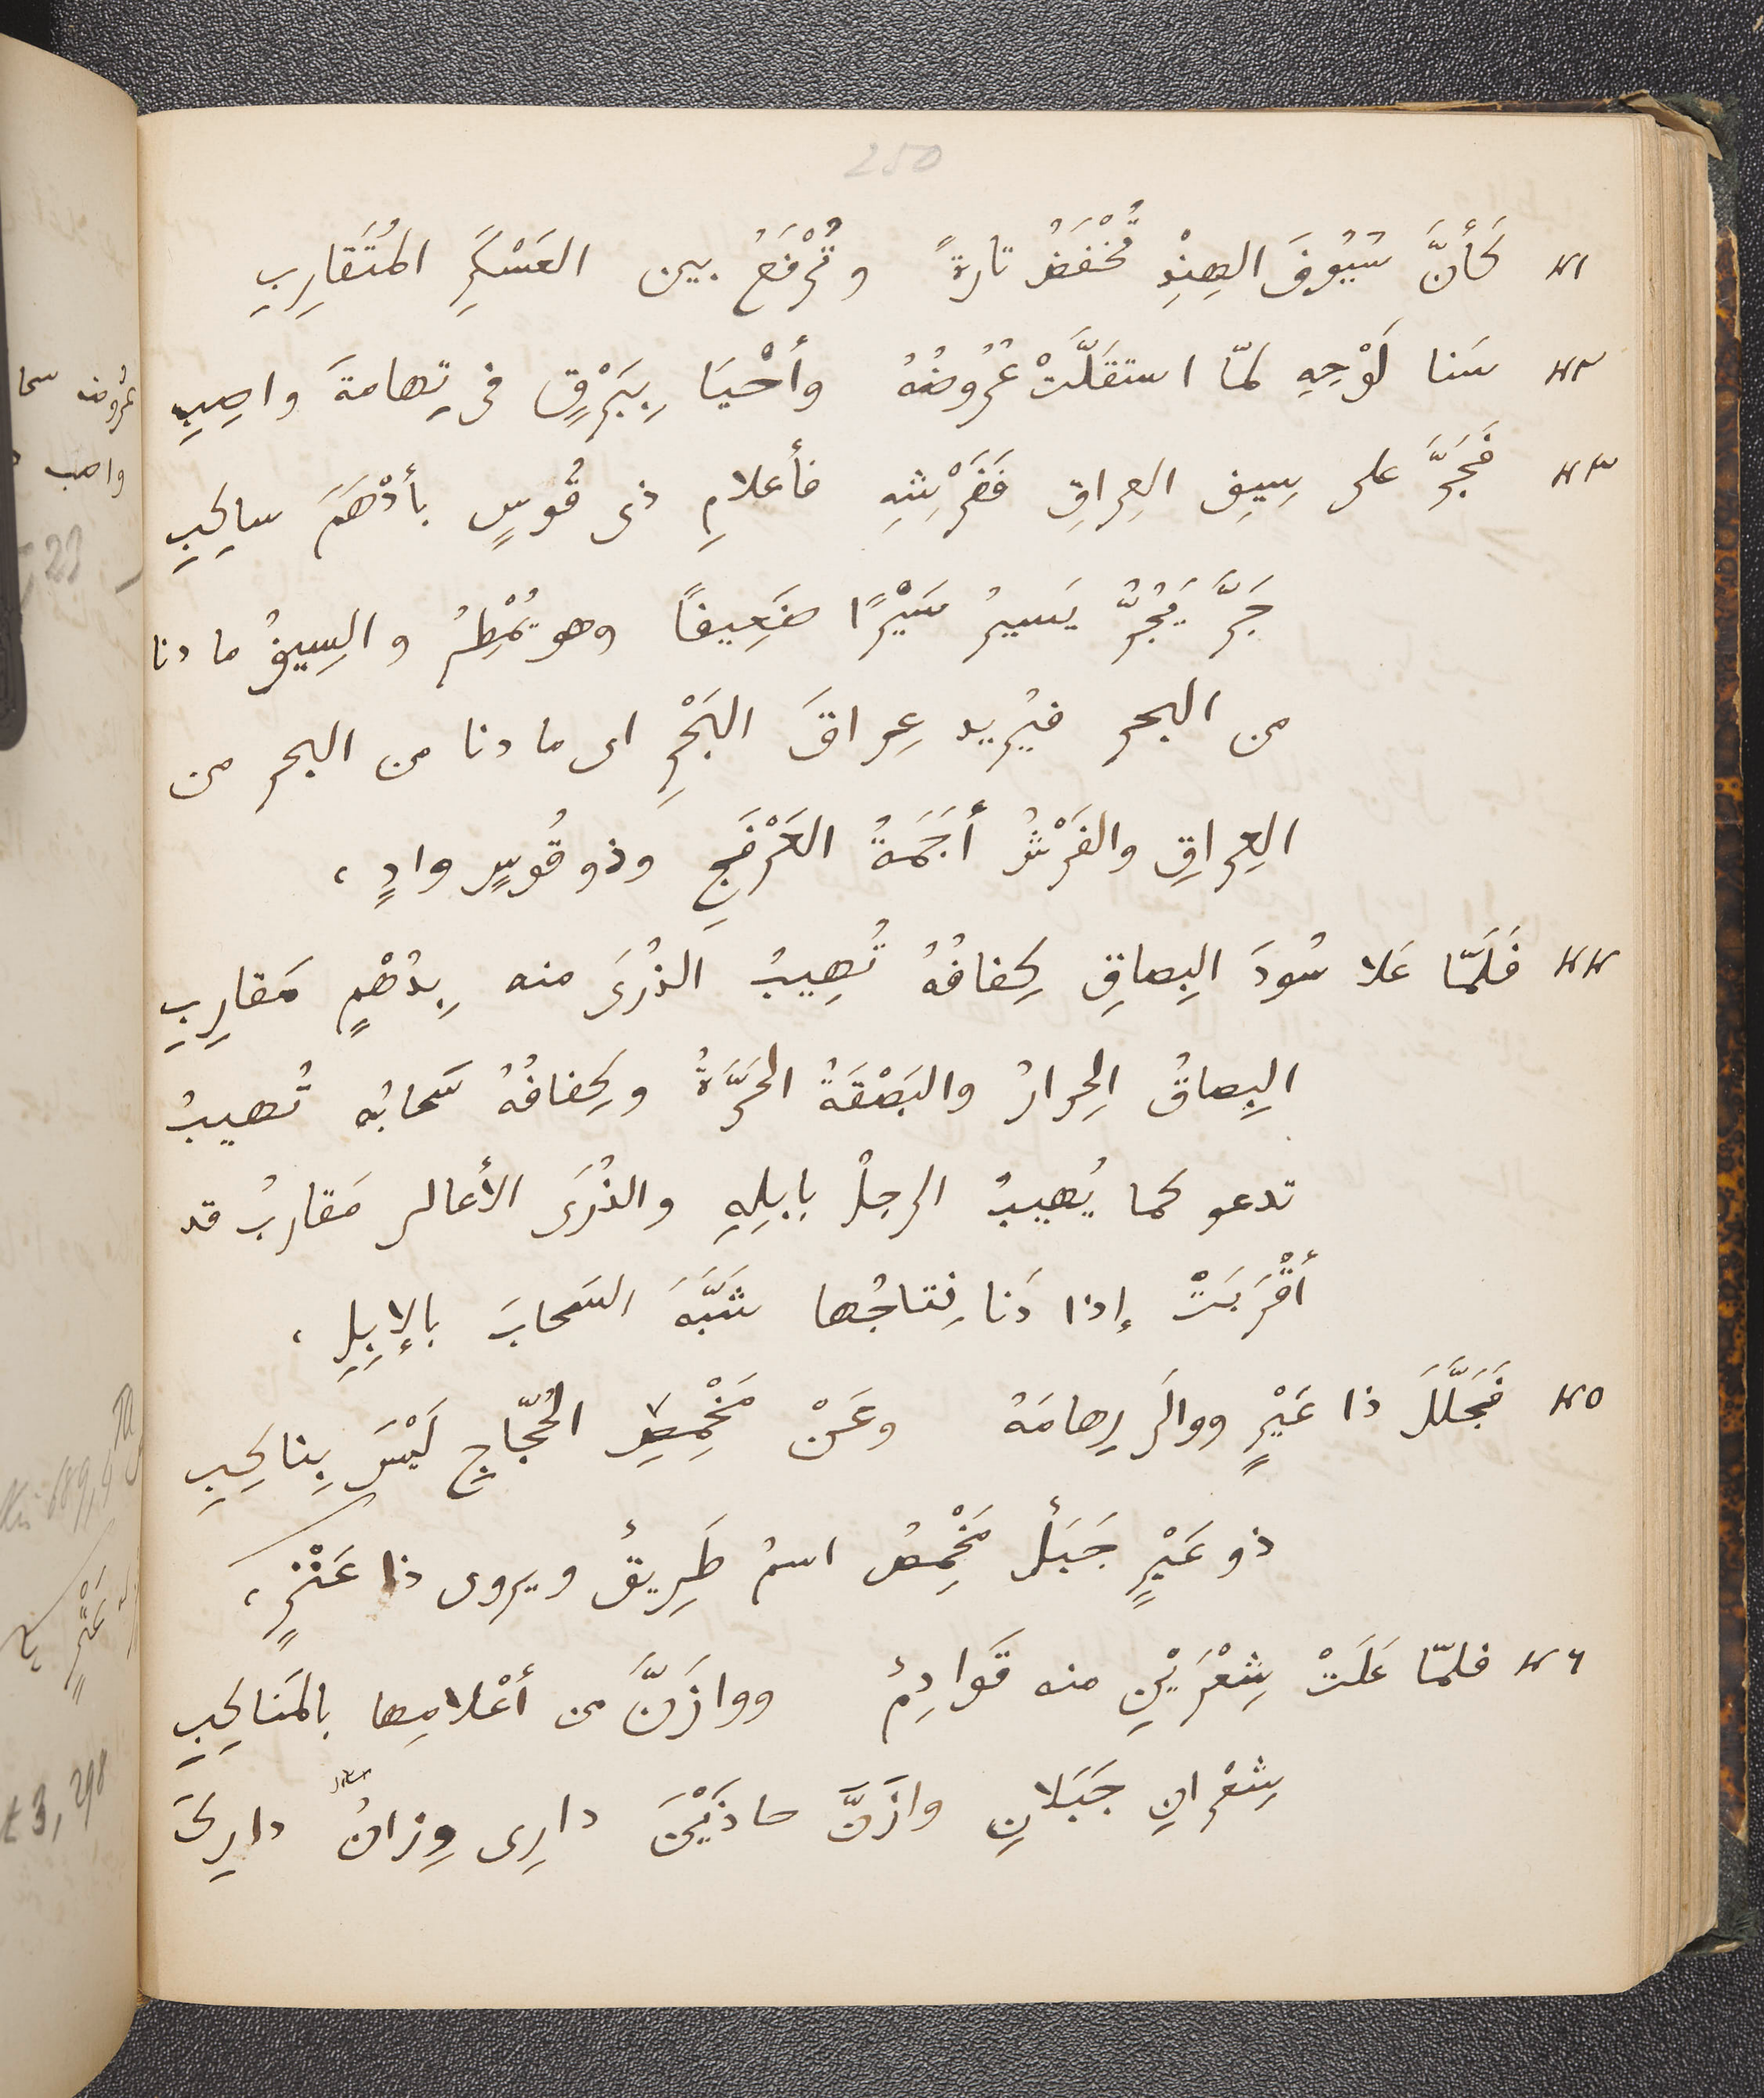 250
٤١ كَأَنَّ سُيُوفَ الهِنْدِ تُخْفَضُ تارةً وتُرْفَعُ بين العَسْكَرِ المُتَقارِبِ
٤٢ سَنا لَوْحِهِ لمّا استقَلَّتْ عُرُوضُهُ وأَحْيَا بِبَرْقٍ فى تِهامةَ واصِبِ
٤٣ فَجَرَّ على سِيفِ العِراقِ فَفَرْشِهِ فأَعلامِ ذى قُوسٍ بأَدْهَمَ ساكِبِ
جَرَّ يَجُرُّ يَسيرُ سَيْرًا ضَعِيفًا وهو يُمْطِرُ والسِيفُ ما دنا
من البحر فيُريد عِراقَ البَحْرِ اى ما دنا من البحر من
العِراقِ والفَرْشُ أَجَمَةُ العَرْفَجِ وذو قُوسٍ وادٍ،
٤٤ فَلَمّا عَلا سُودَ البِصاقِ كِفافُهُ تُهِيبُ الذُرَى منه بِدُهْمٍ مَقارِبِ
البِصاقُ الحِرارُ والبَصْقَةُ الحَرَّةُ وكِفافُهُ سَحابُه تُهيبُ
تدعو كما يُهيبُ الرجلُ بإبِلِهِ والذُرَى الأَعالى مَقاربُ قد
أَقْرَبَتْ إذا دَنا نِتاجُها شَبَّهَ السَحابَ بالإبِلِ،
٤٥ فَجَلَّلَ ذا عَيْرٍ ووالَى رِهامَهُ وعَنْ مَخْمِصِ الحُجّاجِ لَيْسَ بِناكِبِ
ذو عَيْرٍ جَبَلٌ مَخْمِصُ اسمُ طَرِيقٍ ويروى ذا عَنْزٍ،
٤٦ فلمّا عَلَتْ شِعْرَيْنِ منه قَوادِمٌ ووازَنَّ من أَعْلامِها بالمَناكِبِ
شِعْرانِ جَبَلانِ وازَنَّ حاذَيْنَ دارِى وِزانُ دارِكَ
عُرُوضه سحا
واصب